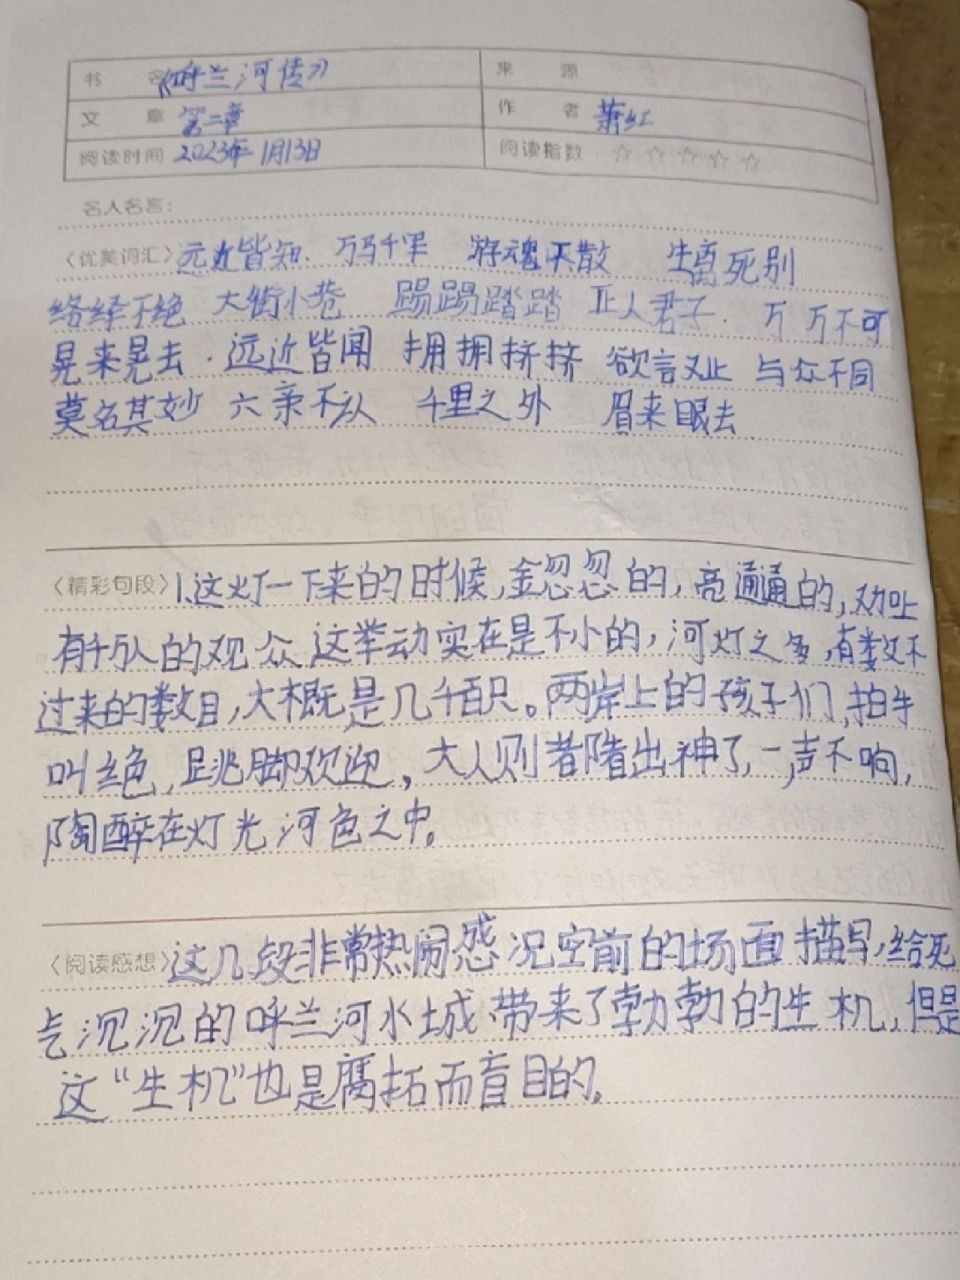 书 名 《呼兰河传》 来 源
文 章 第二章 作 者 萧红
阅读时间 2023年1月13日 阅读指数 ☆ ☆ ☆ ☆ ☆
名人名言:
〈优美词汇〉远近皆知. 万马千军 游魂不散 生离死别
络绎不绝 大街小巷 踢踢踏踏 正人君子. 万万不可
晃来晃去. 远近皆闻 拥拥挤挤 欲言又止 与众不同
莫名其妙 六亲不认 千里之外 眉来眼去
〈精彩句段〉1.这灯一下来的时候,金忽忽的,亮通通的,又加上
有千万人的观众这举动实在是不小的,河灯之多,有数不
过来的数目,大概是几千百只。两岸上的孩子们,拍手
叫绝,跳脚欢迎,大人则都陪出神了,一声不响,
陶醉在灯光河色之中。
〈阅读感想〉这几段非常热闹 况空前的场面描写,给死
气沉沉的呼兰河水城带来了勃勃的生机,但是
这“生机”也是腐 而盲目的。